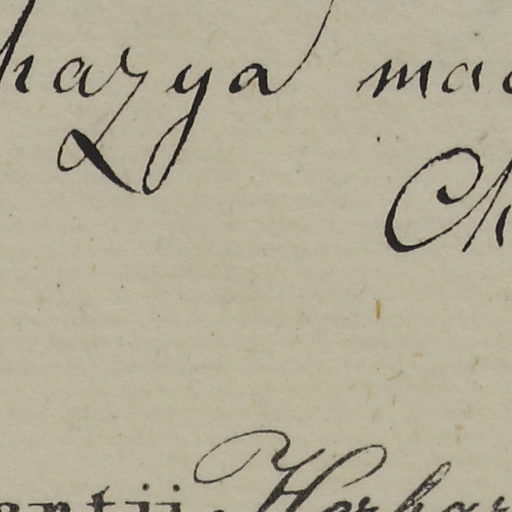 hazya mac
Ch
antii Herbar